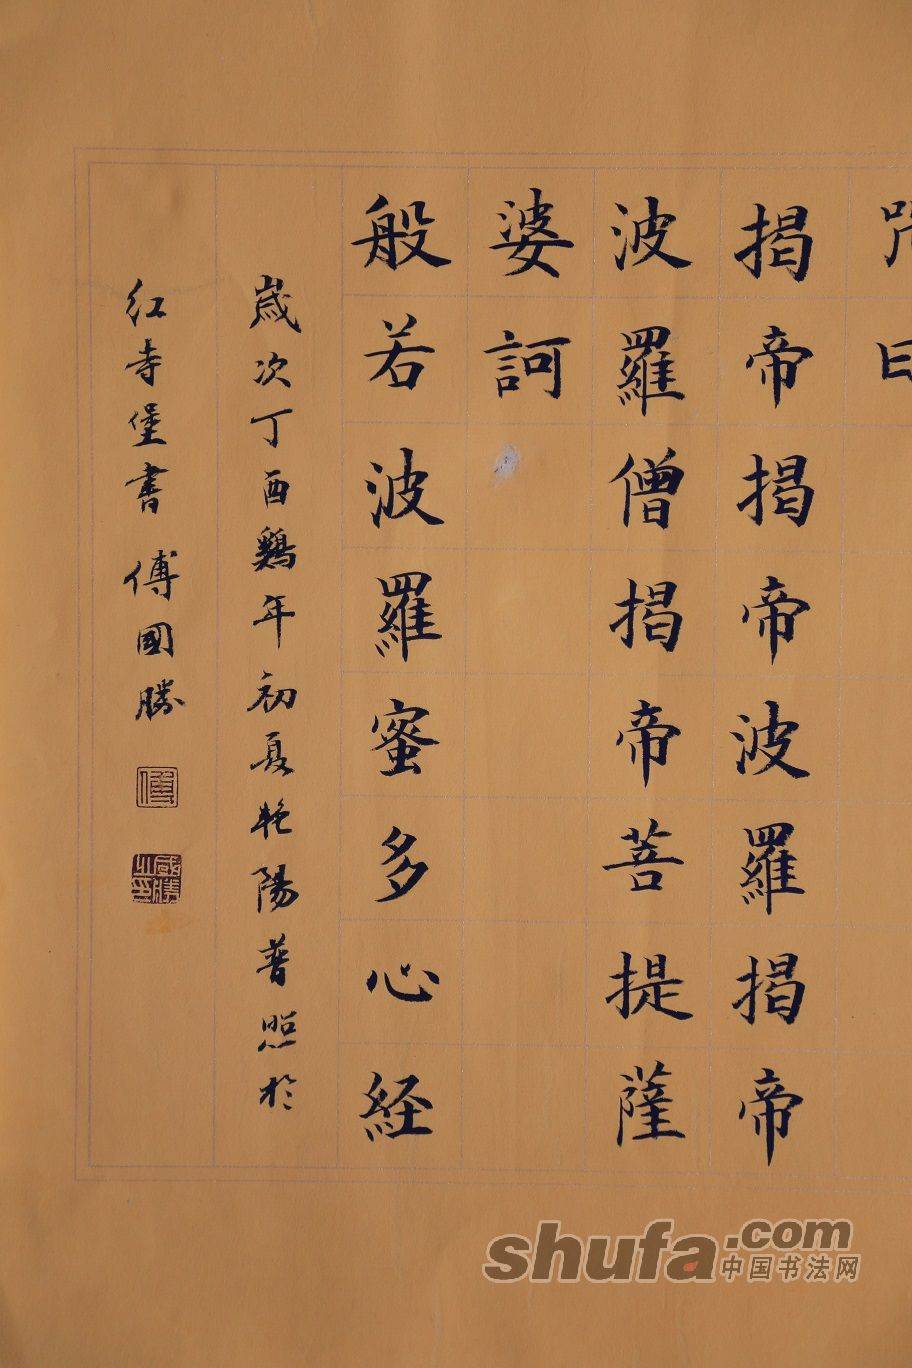 曰
揭帝揭帝波羅揭帝
波羅僧揭帝菩提薩
婆訶
般若波羅蜜多心経
歲次丁酉鷄年初夏艳陽普照於
红寺堡書 傅國勝
傅
國勝之印
shufa.com
中国书法网